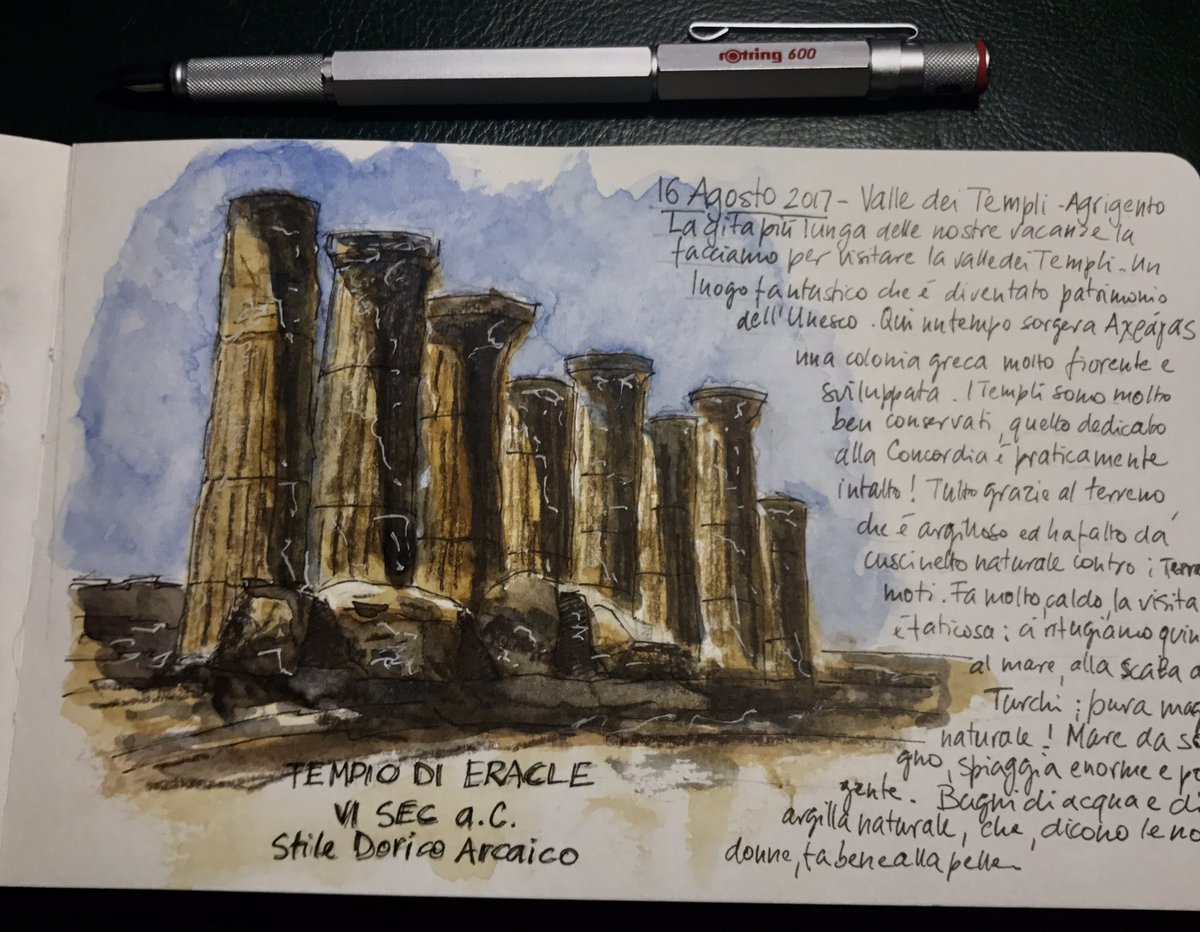 rotring 600
16 Agosto 2017 - Valle dei Templi - Agrigento
La gita più lunga delle nostre vacanze la
facciamo per visitare la valle dei Templi. Un
luogo fantastico che è diventato patrimonio
dell'Unesco. Qui un tempo sorgeva
una colonia greca molto fiorente e
sviluppata. I Templi sono molto
ben conservati, quello dedicato
alla Concordia è praticamente
intatto! Tutto grazie al terreno,
che è argilloso ed ha fatto da
cuscinetto naturale contro i Terre
moti. Fa molto caldo, la visita
è faticosa: ci rifugiamo quin
al mare, alla scala d
Turchi: pura mag
naturale! Mare da so
gno, spiaggia enorme e po
gente. Bagni di acqua e di
argilla naturale, che, dicono le no
donne, fa bene alla pelle.
TEMPIO DI ERACLE
VI SEC a.C.
Stile Dorico Arcaico